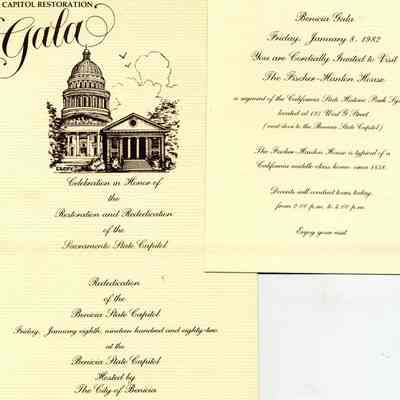 CAPITOL RESTORATION
Gala
Celebration in Honor of
the
Restoration and Rededication
of the
Sacramento State Capitol
Rededication
of the
Benicia State Capitol
Friday, January eighth, nineteen hundred and eighty-two
at the
Benicia State Capitol
Hosted by
The City of Benicia
Benicia Gala
Friday, January 8, 1982
You are Cordially Invited to Visit
The Fischer-Hanlon House
a segment of the California State Historic Park Sys
located at 135 West G Street
(next door to the Benicia State Capitol)
The Fischer-Hanlon House is typical of a
California middle class home circa 1858.
Docents will conduct tours today
from 2:00 p.m. to 4:00 p.m.
Enjoy your visit